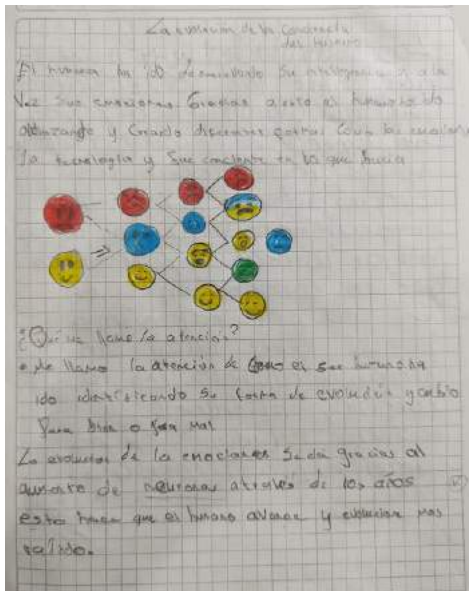 La evolucion de la Conducta
del humano
El humano ha ido desarrollando su inteligencia y a la
Vez sus emociones Gracias a esto el humano ha ido
avanzando y Creando diferentes como las
la tecnologia y en lo que hacia
¿Que me llamo la atencion?
• Me llamo la atención de Como el ser humano ha
ido identificando su forma de evolución y cambio
para bien o para mal
La evolucion de la emociones se da gracias al
aumento de neuronas atraves de los años
esto hace que el humano avance y evolucion mas
rapido.